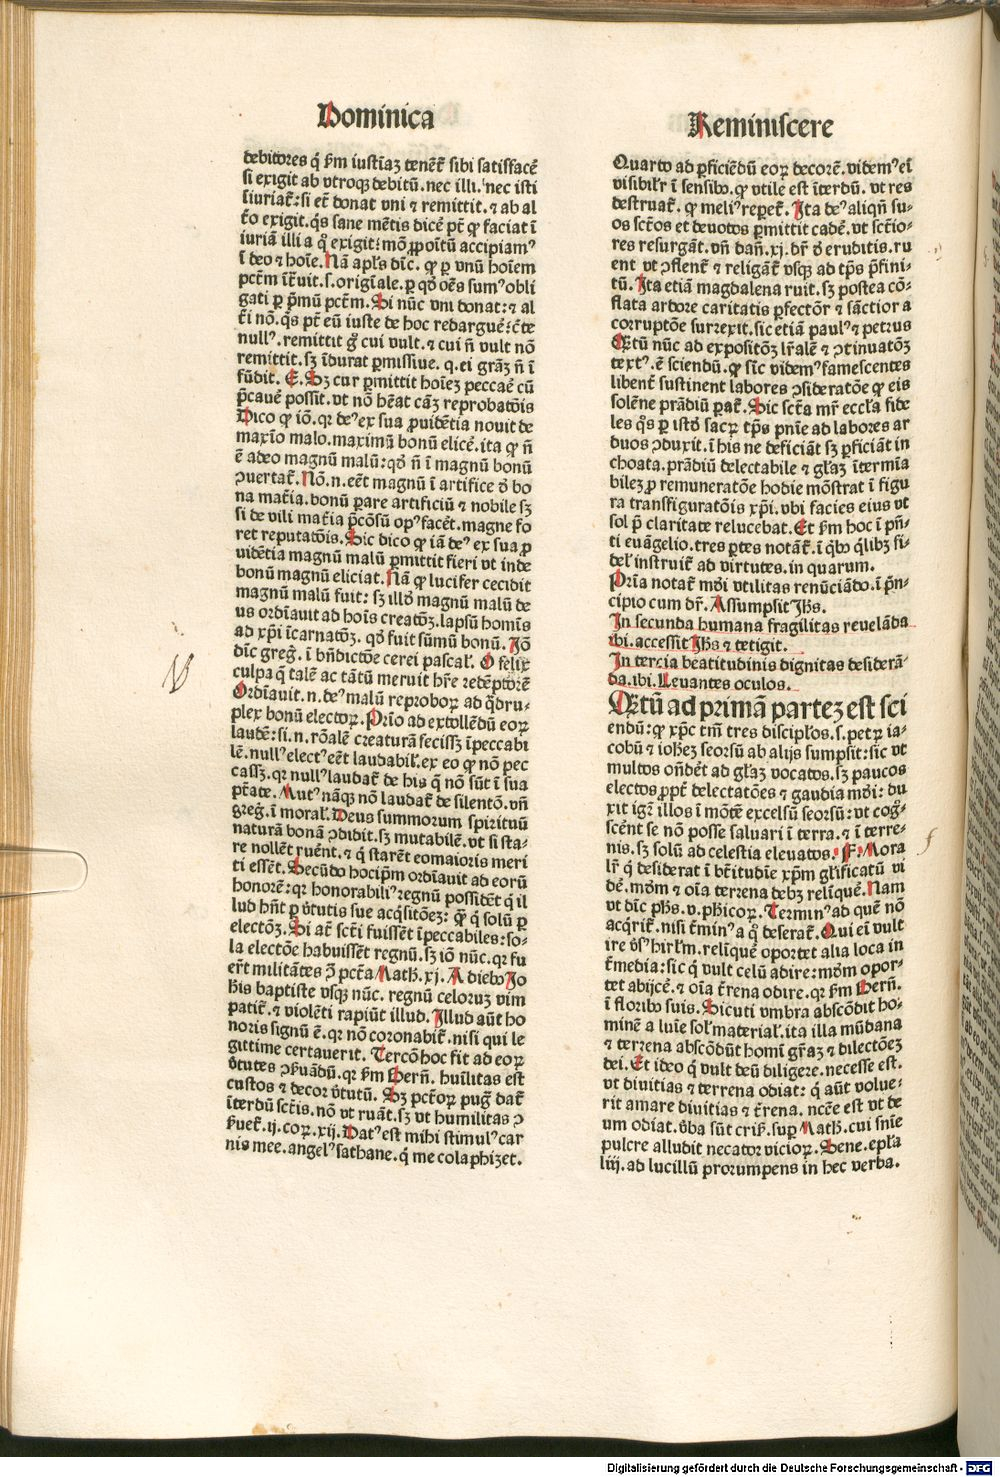 Dominica
debitores q̄ ẜm iustiaꝫ tenēt̄ sibi satisfacē
si exigit ab vtroqꝫ debitū. nec illi. nec isti
iuriat̄: si et̄ donat vni ⁊ remittit. ⁊ ab al
t̄o exigit. q̄s sane mētis dicē pt̄ ꝙ faciat ī
iuriā illi a q̊ exigit: mō ꝓpoītū accipiamꝰ
ī deo ⁊ hoīe. Nā apl̄s dīc. ꝙ ꝑ vnū hoīem
pct̄m īt̄uit. s. origīale. ꝑ qd̊ oēs sumꝰ obli
gati ꝑ pͥmū pct̄m. Si nūc vni donat: ⁊ al
t̄i nō. q̄s pt̄ eū iuste de hoc redarguē: c̄te
nullꝰ. remittit g̊ cui vult. ⁊ cui n̄ vult nō
remittit. sꝫ īdurat ꝑmissiue. q. ei grāꝫ n̄ ī
fūdit. E. Sꝫ cur ꝑmittit hoīeꝫ peccaē cū
p̄cauē possit. vt nō hēat cāꝫ reprobatōis
Dico ꝙ iō. qꝛ deꝰ ex sua ꝓuidētia nouit de
maxīo malo. maximū bonū elicē. ita ꝙ n̄
ē adeo magnū malū: qd̊ n̄ ī magnū bonū
ↄuertat̄. Nō. n. eēt magnū ī artifice d̊ bo
na mat̄ia. bonū ꝑare artificiū ⁊ nobile sꝫ
si de vili mat̄ia p̄cōsū opꝰ facēt. magne fo
ret reputatōis. Sic dico ꝙ iā deꝰ ex sua ꝓ
uidētia magnū malū ꝑmittit fieri vt inde
bonū magnū eliciat. Nā ꝙ lucifer cecidit
magnū malū fuit: sꝫ illd̊ magnū malū de
us ordīauit ad hoīs creatōꝫ. lapsū homīs
ad xp̄i īcarnatōꝫ. qd̊ fuit sūmū bonū. Jō
dīc greg̊. ī bn̄dictōe cerei pascal̄. O felix
culpa q̄ talē ac tātū meruit hr̄e redēptorē
Ordīauit. n. deꝰ malū reproboꝝ ad q̄dru-
plex bonū electoꝝ. Prīo ad extollēdū eoꝝ
laudē: si. n. rōalē creaturā fecissꝫ īpeccabi
lē. nullꝰ electꝰ eēt laudabil̄. ex eo ꝙ nō pec
cassꝫ. qꝛ nullꝰ laudat̄ de his q̄ nō sūt ī sua
pt̄ate. Mutꝰ nāqꝫ nō laudat̄ de silentō. vn̄
greg̊. ī moral̄. Deus summorum spirituū
naturā bonā ↄdidit. sꝫ mutabilē. vt si sta-
re nollēt ruēnt. ⁊ q̄ starēt eomaioris meri
ti essēt. Secūdo hocip̄m ordīauit ad eorū
honorē: qꝛ honorabiliꝰ regnū possidēt q̄ il
lud hn̄t ꝑ v̊tutis sue acq̄sitōeꝫ: ꝙ q̄ solū ꝑ
electōꝫ. Si at̄ sct̄i fuissēt īpeccabiles: so-
la electōe habuissēt regnū. sꝫ iō nūc. qꝛ fu
er̄t militātes ꝯ̄ pct̄a Math̄. xj. A diebꝰ Jo
h̄is baptiste vsqꝫ nūc. regnū celoruꝫ vim
patit̄. ⁊ violēti rapiūt illud. Illud aūt ho
noris signū ē. qꝛ nō coronabit̄. nisi qui le
gittime certauerit. Tercō hoc fit ad eoꝝ
v̊tutes ↄẜuādū. qꝛ ẜm Bern̄. huīlitas est
custos ⁊ decor v̊tutū. Sꝫ pct̄oꝝ pug̊ dat̄
īterdū sct̄is. nō vt ruāt. sꝫ vt humilitas ↄ
ẜuet̄. ij. coꝝ. xij. Datꝰ est mihi stimulꝰ car
nis mee. angelꝰ sathane. q̄ me colaphizet.
Reminiscere
Quarto ad ꝑficiēdū eoꝝ decorē. videmꝰ eī
visibil̄r ī sensibꝰ. ꝙ vtile est īterdū. vt res
destruat̄. ꝙ meliꝰ reꝑet̄. Ita deꝰ aliqn̄ su-
os sct̄os et deuotos ꝑmittit cadē. vt sct̄io-
res resurgāt. vn̄ dan̄. xj. dr̄ d̊ eruditis. ru
ent vt ↄflent̄ ⁊ religāt̄ vsqꝫ ad tp̄s p̄fini-
tū. Ita etiā magdalena ruit. sꝫ postea cō-
flata ardore caritatis ꝑfectōr ⁊ sāctior a
corruptōe surrexit. sic etiā paulꝰ ⁊ petrus
Qētū nūc ad expositōꝫ lr̄alē ⁊ ↄtinuatōꝫ
textꝰ. ē sciendū. ꝙ sic videmꝰ famescentes
libent̄ sustinent labores ↄsideratōe ꝙ eis
solēne prādiū ꝑat̄. Sic sct̄a mr̄ eccl̄a fide
les q̊s ꝑ istd̊ sacꝝ tp̄s pnīe ad labores ar
duos ↄduxit. ī his ne deficiāt sꝫ ꝑficiāt in
choata. prādiū delectabile ⁊ gl̄aꝫ ītermīa
bileꝫ ꝓ remuneratōe hodie mōstrat ī figu
ra transfiguratōis xp̄i. vbi facies eius vt
sol p̄ claritate relucebat. Et ẜm hoc ī pn̄-
ti euāgelio. tres ꝑtes notāt̄. ī q̄bꝰ q̄libꝫ fi-
del̄ instruit̄ ad virtutes. in quarum.
Prīa notat̄ mūdi vtilitas renūciādo. ī pͥn-
cipio cum dr̄. Assumpsit Jh̄s.
In secunda humana fragilitas reuelāda
ibi. accessit Jh̄s ⁊ tetigit.
In tercia beatitudinis dignitas desiderā-
da. ibi. Leuantes oculos.
Qētū ad primā parteꝫ est sci
endū: ꝙ xp̄c tm̄ tres discipl̄os. s. petꝝ ia-
cobū ⁊ ioh̄eꝫ seorsū ab alijs sumpsit: sic vt
multos on̄dēt ad gl̄aꝫ vocatos. sꝫ paucos
electos ꝓpt̄ delectatōes ⁊ gaudia mūdi: du
xit igꝛ̄ illos ī mōtē excelsū seorsū: vt cog̊-
scēnt se nō posse saluari ī terra. ⁊ ī terre-
nis. sꝫ solū ad celestia eleuatos. F. Mora
lr̄ q̄ desiderat ī bt̄itudīe xp̄m gl̄ificatū vi
dē. mūdm ⁊ oīa terrena debꝫ relīquē. Nam
vt dīc ph̄s. v. ph̄icoꝝ. Terminꝰ ad quē nō
acq̄rit̄. nisi t̄minꝰ a q̊ deserat̄. Qui eī vult
ire v̊sꝰ hirl̄m. relīquē oportet alia loca in
t̄media: sic q̄ vult celū adire: mūdm opor-
tet abijcē. ⁊ oīa t̄rena odire. qꝛ ẜm Bern̄.
ī floribꝰ suis. Sicuti vmbra abscōdit ho-
minē a luīe sol̄ material̄. ita illa mūdana
⁊ terrena abscōdūt homī gr̄aꝫ ⁊ dilectōeꝫ
dei. Et ideo q̄ vult deū diligere. necesse est.
vt diuitias ⁊ terrena odiat: q̄ aūt volue-
rit amare diuitias ⁊ t̄rena. ncc̄e est vt de
um odiat. v̊ba sūt criẜ. suꝑ Math̄. cui snīe
pulcre alludit necator vicioꝝ. Sene. epl̄a
liij. ad lucillū prorumpens in hec verba.
Digitalisierung gefördert durch die Deutsche Forschungsgemeinschaft - DFG